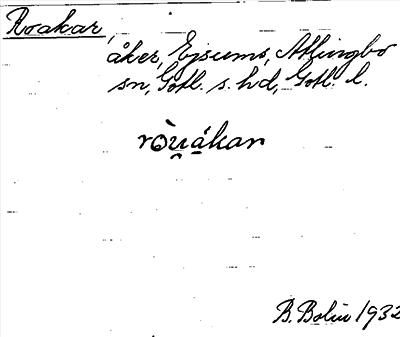 Roakar,
åker, Ejsums, Atlingbo
sn, Gotl. s. hd, Gotl. l.
ròu̯á̱kan
B. Bolin 1932